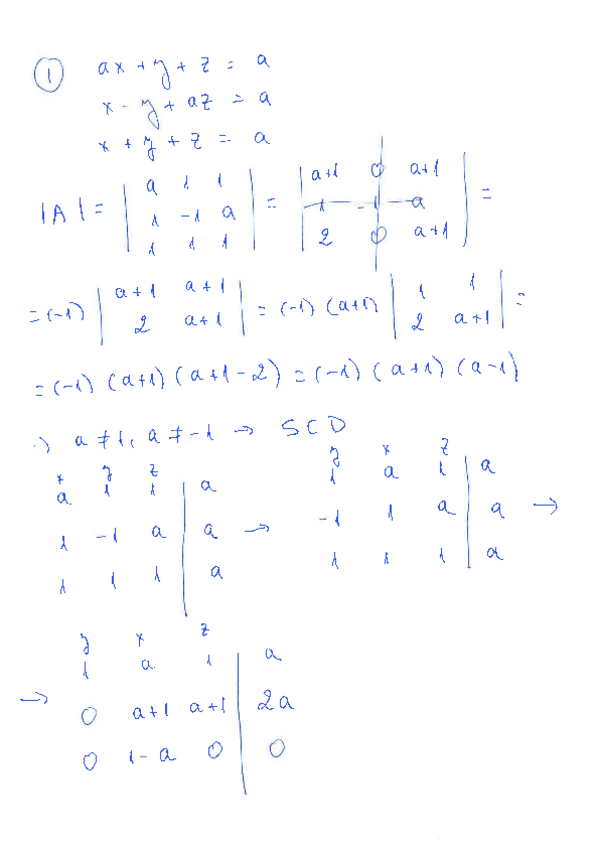 ① ax + y + z = a
x - y + az = a
x + y + z = a
|A| = | a 1 1 | = | a+1 0 a+1 | =
| 1 -1 a | | 1 -1 a |
| 1 1 1 | | 2 0 a+1 |
= (-1) | a+1 a+1 | = (-1) (a+1) | 1 1 | =
| 2 a+1 | | 2 a+1 |
= (-1) (a+1) (a+1-2) = (-1) (a+1) (a-1)
·) a ≠ 1, a ≠ -1 → SCD
x y z y x z
a 1 1 | a 1 a 1 | a
1 -1 a | a → -1 1 a | a →
1 1 1 | a 1 1 1 | a
y x z
1 a 1 | a
→ 0 a+1 a+1 | 2a
0 1-a 0 | 0